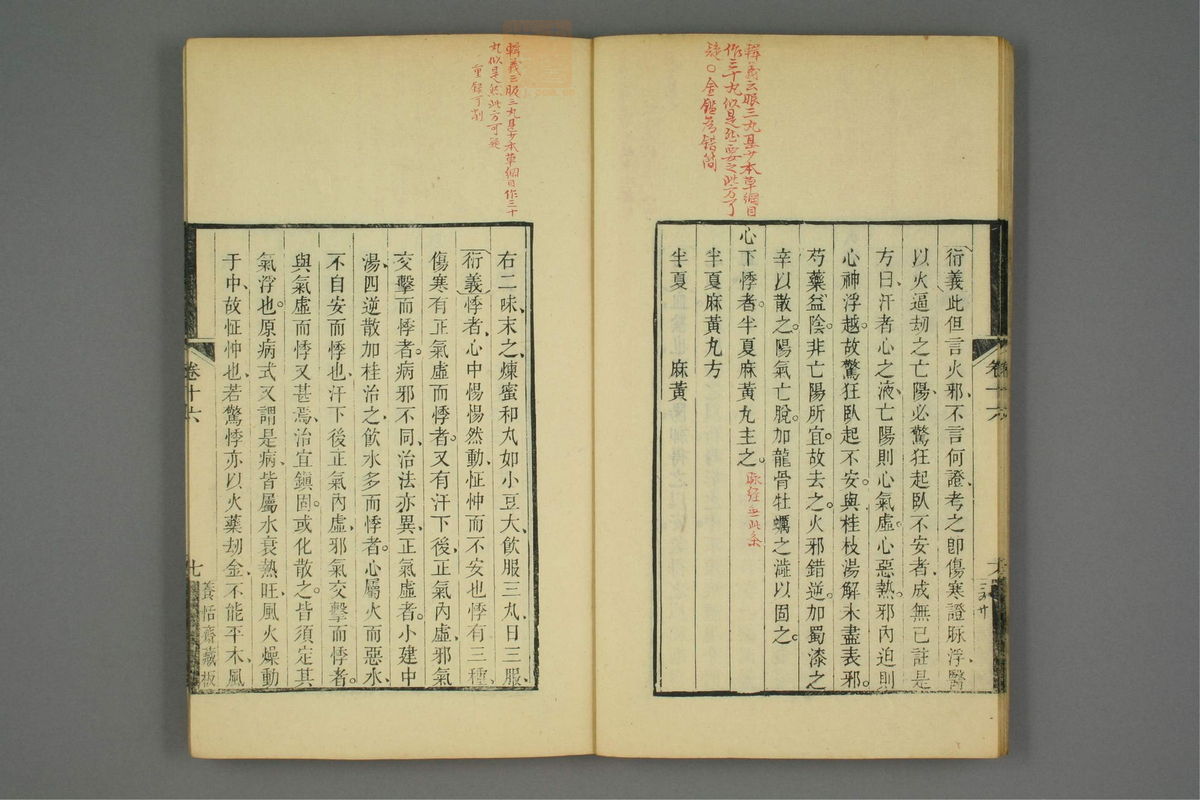 輯義云服三丸甚少本草綱目
作三十丸似是然要之此方可
疑〇金鑑為錯簡
衍義此但言火邪不言何證考之即傷寒證脉浮醫
以火逼刼之亡陽必驚狂起臥不安者成無己註是
方曰汗者心之液亡陽則心氣虛心惡熱邪內迫則
心神浮越故驚狂臥起不安與桂枝湯解未盡表邪
芍藥益陰非亡陽所宜故去之火邪錯逆加蜀漆之
辛以散之陽氣亡脫加龍骨牡蠣之澁以固之
心下悸者半夏麻黃丸主之
脉經無此条
半夏麻黃丸方
半夏 麻黃
卷十六
輯義云服三丸甚少本草綱目作三十
丸似是然此方可疑
重録可削
右二味末之煉蜜和丸如小豆大飲服三丸日三服
衍義悸者心中惕惕然動怔忡而不安也悸有三種
傷寒有正氣虛而悸者又有汗下後正氣內虛邪氣
交擊而悸者病邪不同治法亦異正氣虛者小建中
湯四逆散加桂治之飲水多而悸者心屬火而惡水
不自安而悸也汗下後正氣內虛邪氣交擊而悸者
與氣虛而悸又甚焉治宜鎭固或化散之皆須定其
氣浮也原病式又謂是病皆屬水衰熱旺風火燥動
于中故怔忡也若驚悸亦以火藥刼金不能平木風
卷十六
七
養恬齋藏板